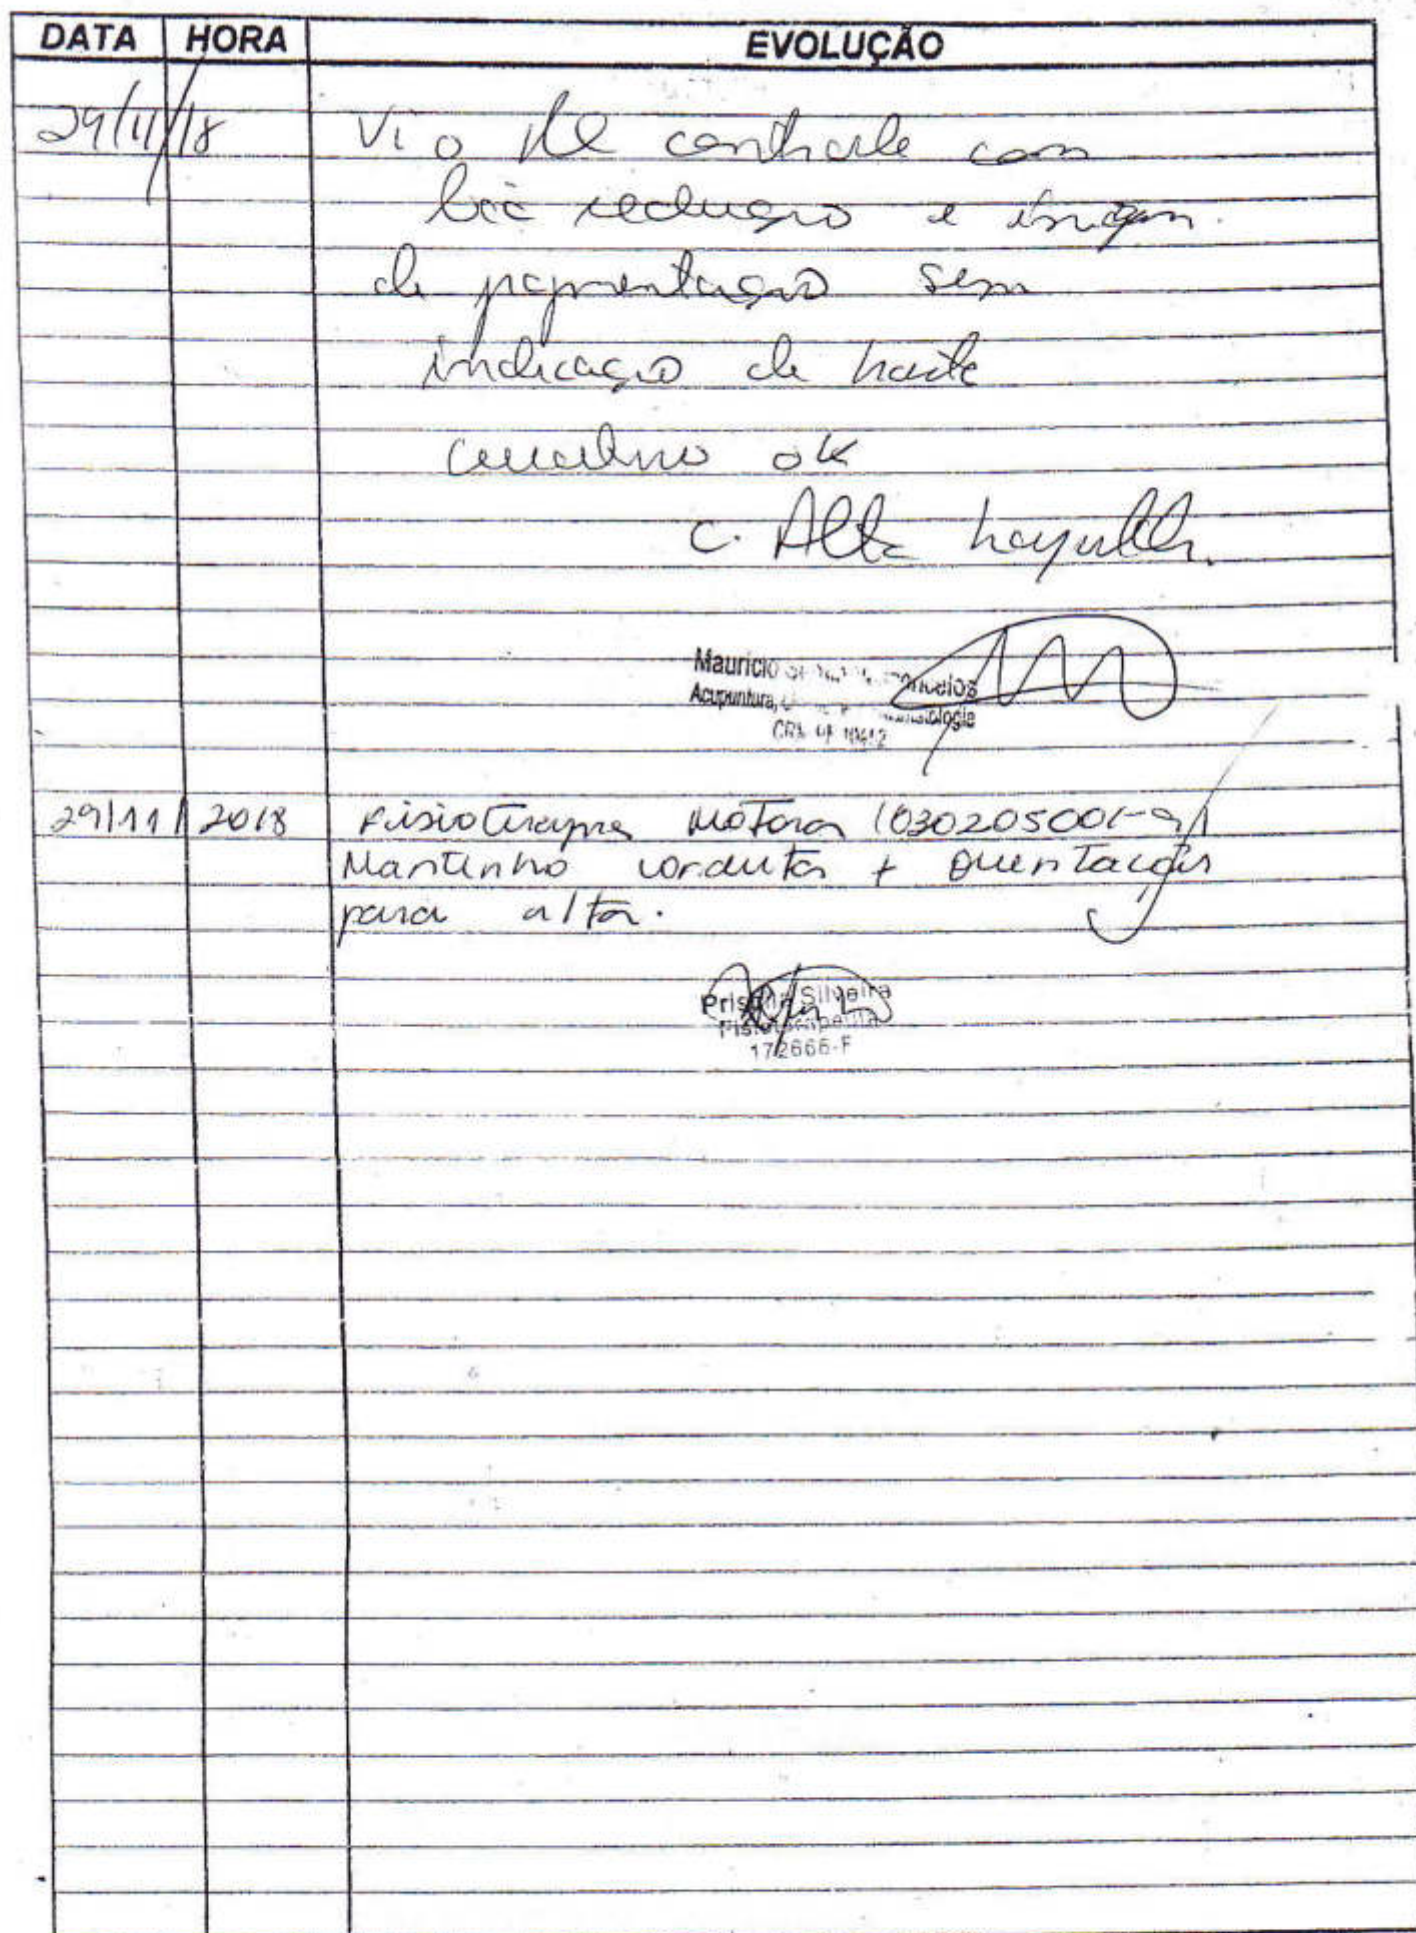 DATA HORA EVOLUÇÃO
29/11/18 Vi o RX controle com
boa redução e imagem
de sem
indicação de haste
ok
C. Alta hospitalar.
Mauricio
Acupuntura,
29/11/2018 Fisioterapia Motora (0302050019)
Mantenho conduta + orientações
para alta.
Priscila Silveira
Fisioterapeuta
172666-F